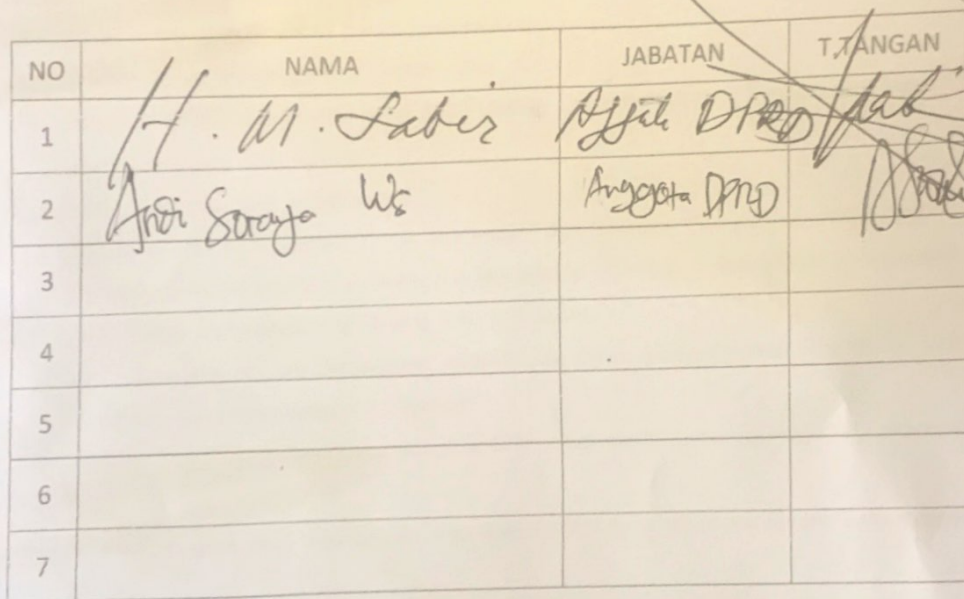 NO NAMA JABATAN T.TANGAN
1 H. M. Sabir DPRD
2 Andi Soraya Ws Anggota DPRD
3
4
5
6
7